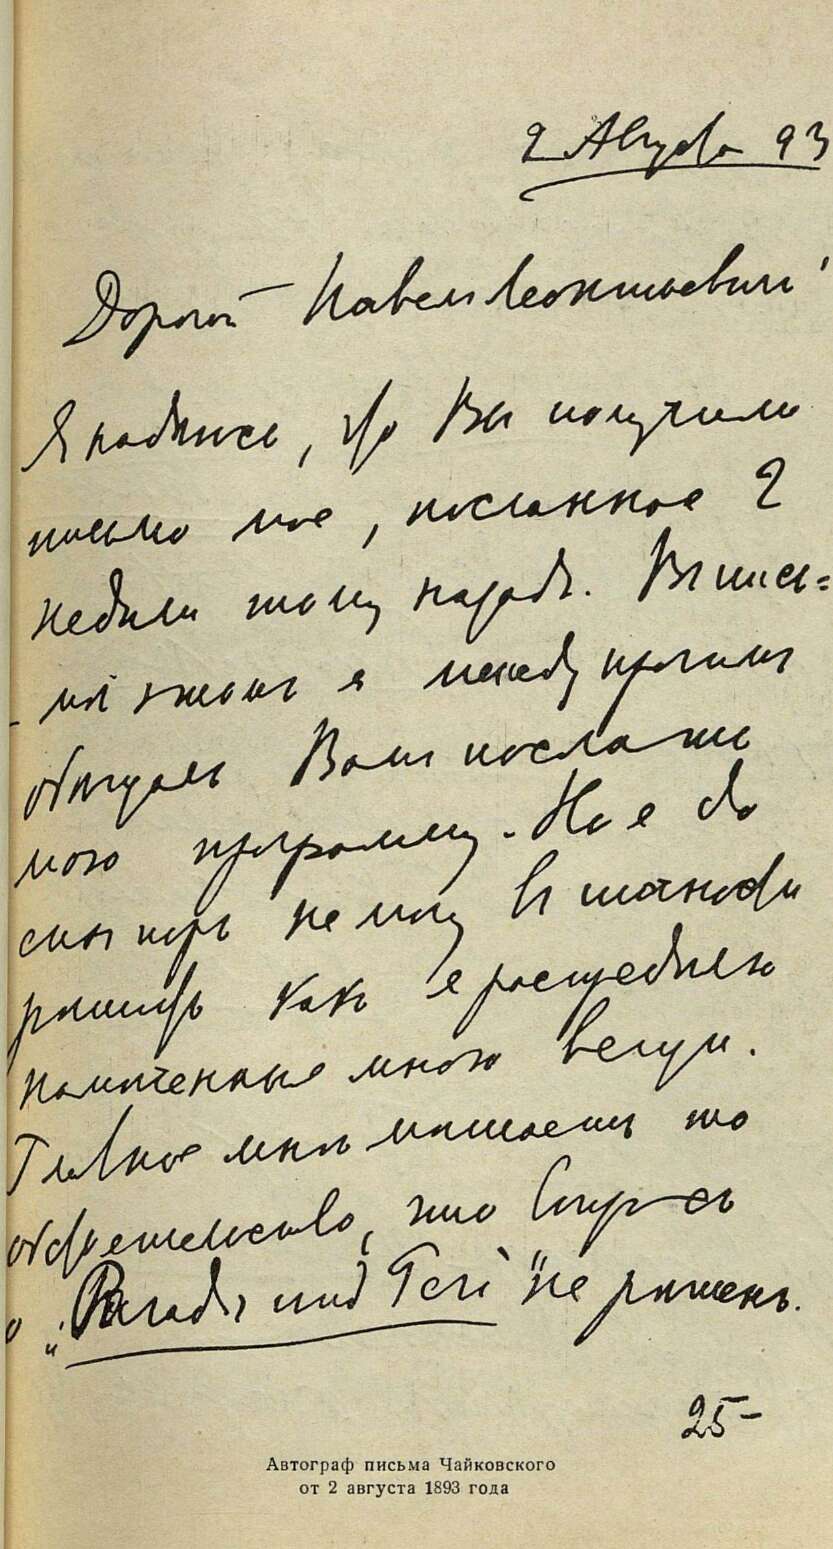 2 Августа 93
Дорогой Павел Леонтьевич!
Я надѣюсь, что Вы получили
письмо мое, посланное 2
недѣли тому назадъ. Въ пись=
мѣ этомъ я между прочимъ
обѣщалъ Вамъ послать
мою программу. Но я до
сихъ поръ не могу въ точности
рѣшить какъ я распредѣлю
намѣченныя мною вещи.
Главное мнѣ мѣшаетъ то
обстоятельство, что вопросъ
о „Paradies und Peri" не рѣшенъ.
25-
Автограф письма Чайковского
от 2 августа 1893 года